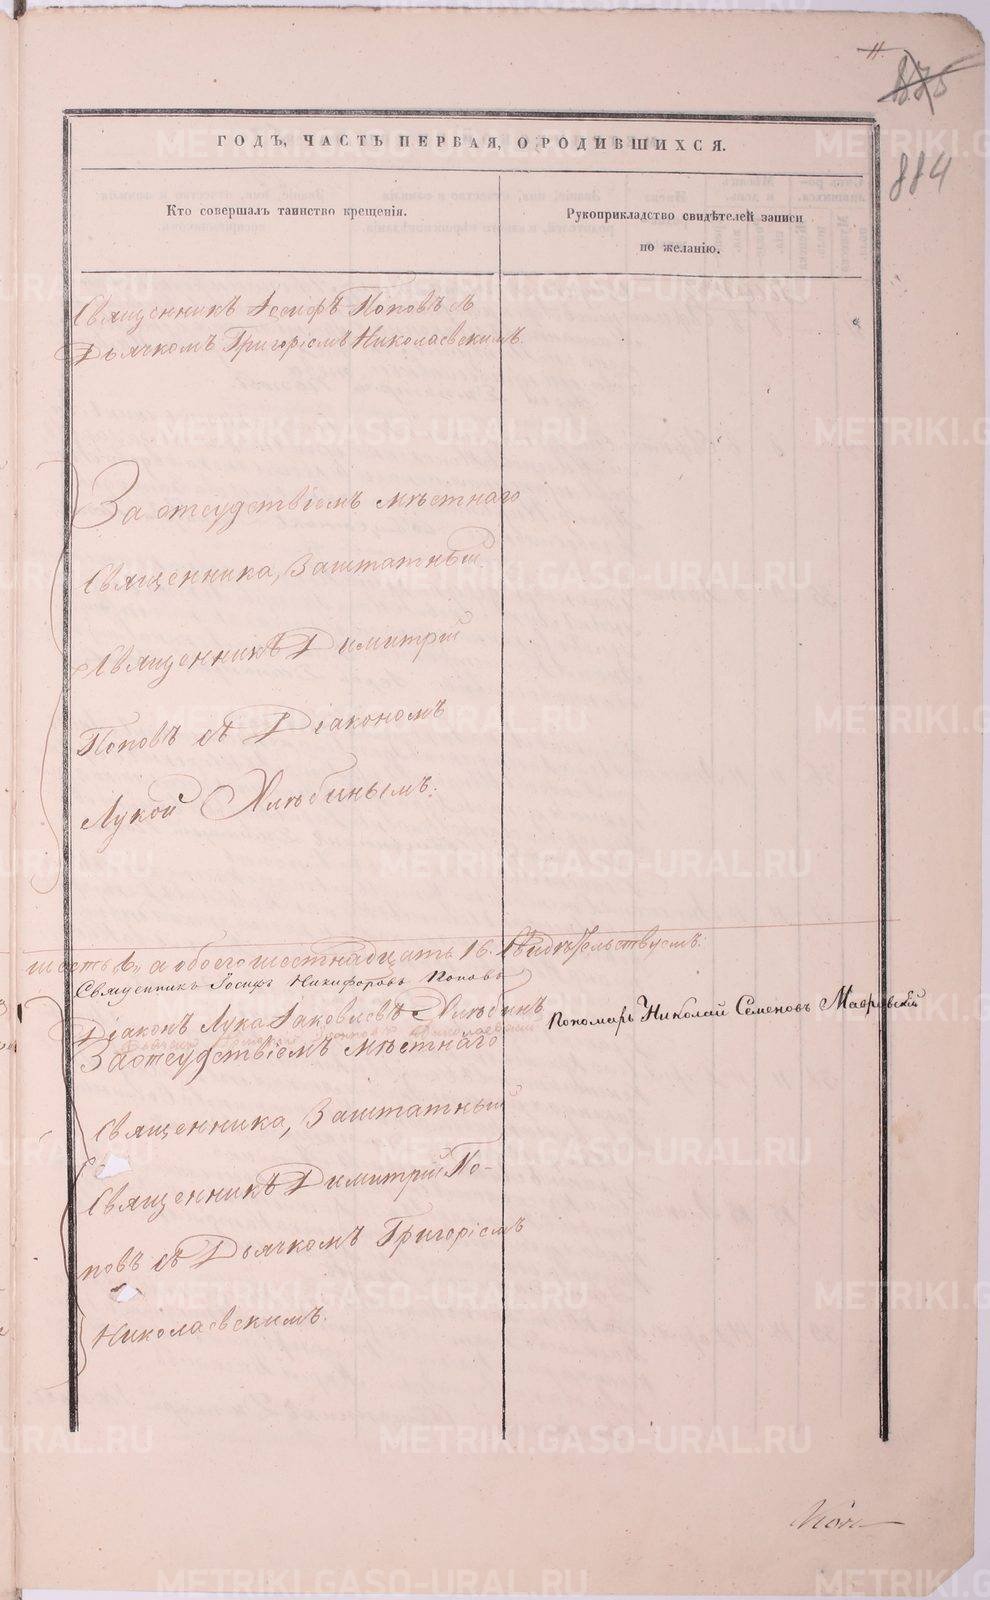 11
875
884
ГОДЪ, ЧАСТЬ ПЕРВАЯ, О РОДИВШИХСЯ.
Кто совершалъ таинство крещенія.
Рукоприкладство свидѣтелей записи
по желанію.
Священникъ Іосифъ Поповъ съ
Дьячкомъ Григоріемъ Николаевскимъ.
За отсудствіемъ мѣстнаго
Священника, Заштатный
Священникъ Димитрій
Поповъ съ Діакономъ
Лукой Хлѣбинымъ.
шесть 6, а обоего шестнадцать 16. Свидѣтельствуемъ:
Священникъ Іосифъ Никифоровъ Поповъ
Діаконъ Лука Іаковлевъ Хлѣбинъ
Пономарь Николай Семеновъ Мавровскій
За отсудствіемъ мѣстнаго
Священника, Заштатный
Священникъ Димитрій По-
повъ съ Дьячкомъ Григоріемъ
Николаевскимъ.
METRIKI.GASO-URAL.RU